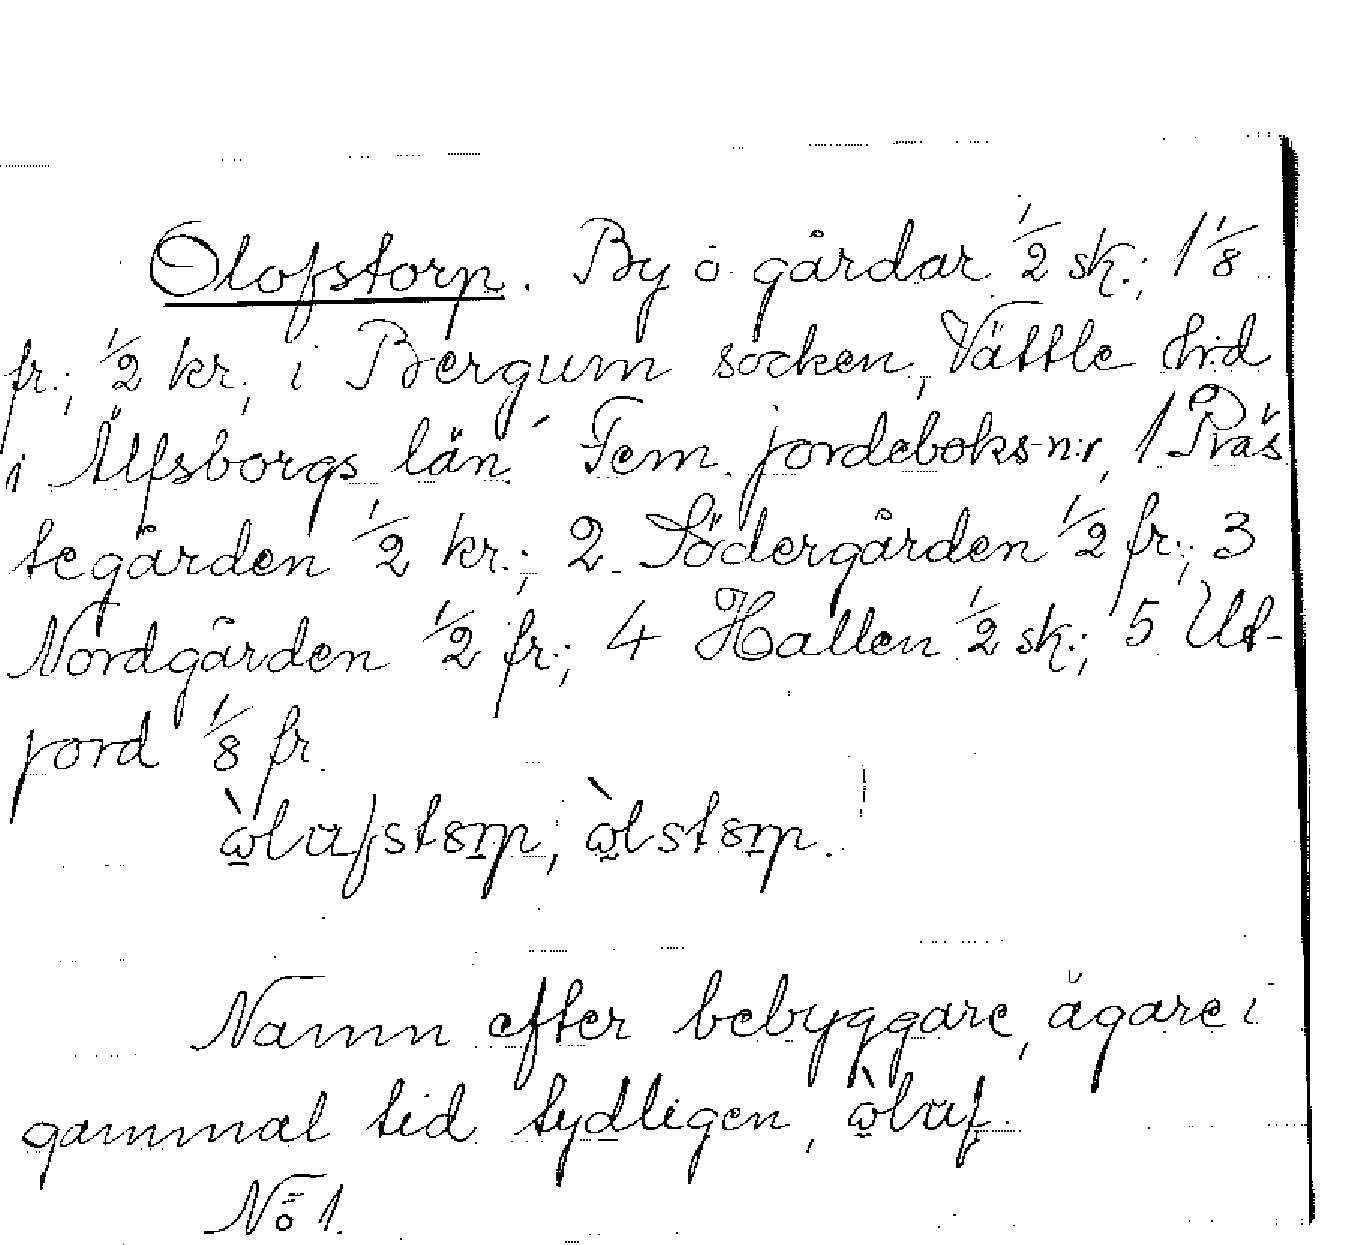 Olofstorp. By o gårdar 1/2 sk.; 1 1/8
fr.; 1/2 kr., i Bergum socken, Vättle hrd
i Älfsborgs län. Fem jordeboks-n:r, 1 Präs
tegården 1/2 kr.; 2 Södergården 1/2 fr.; 3
Nordgården 1/2 fr.; 4 Hallen 1/2 sk.; 5 Ut-
jord 1/8 fr.
òlafstorp, òlstorp.
Namn efter bebyggare, ägare i
gammal tid tydligen, òlaf.
No 1.